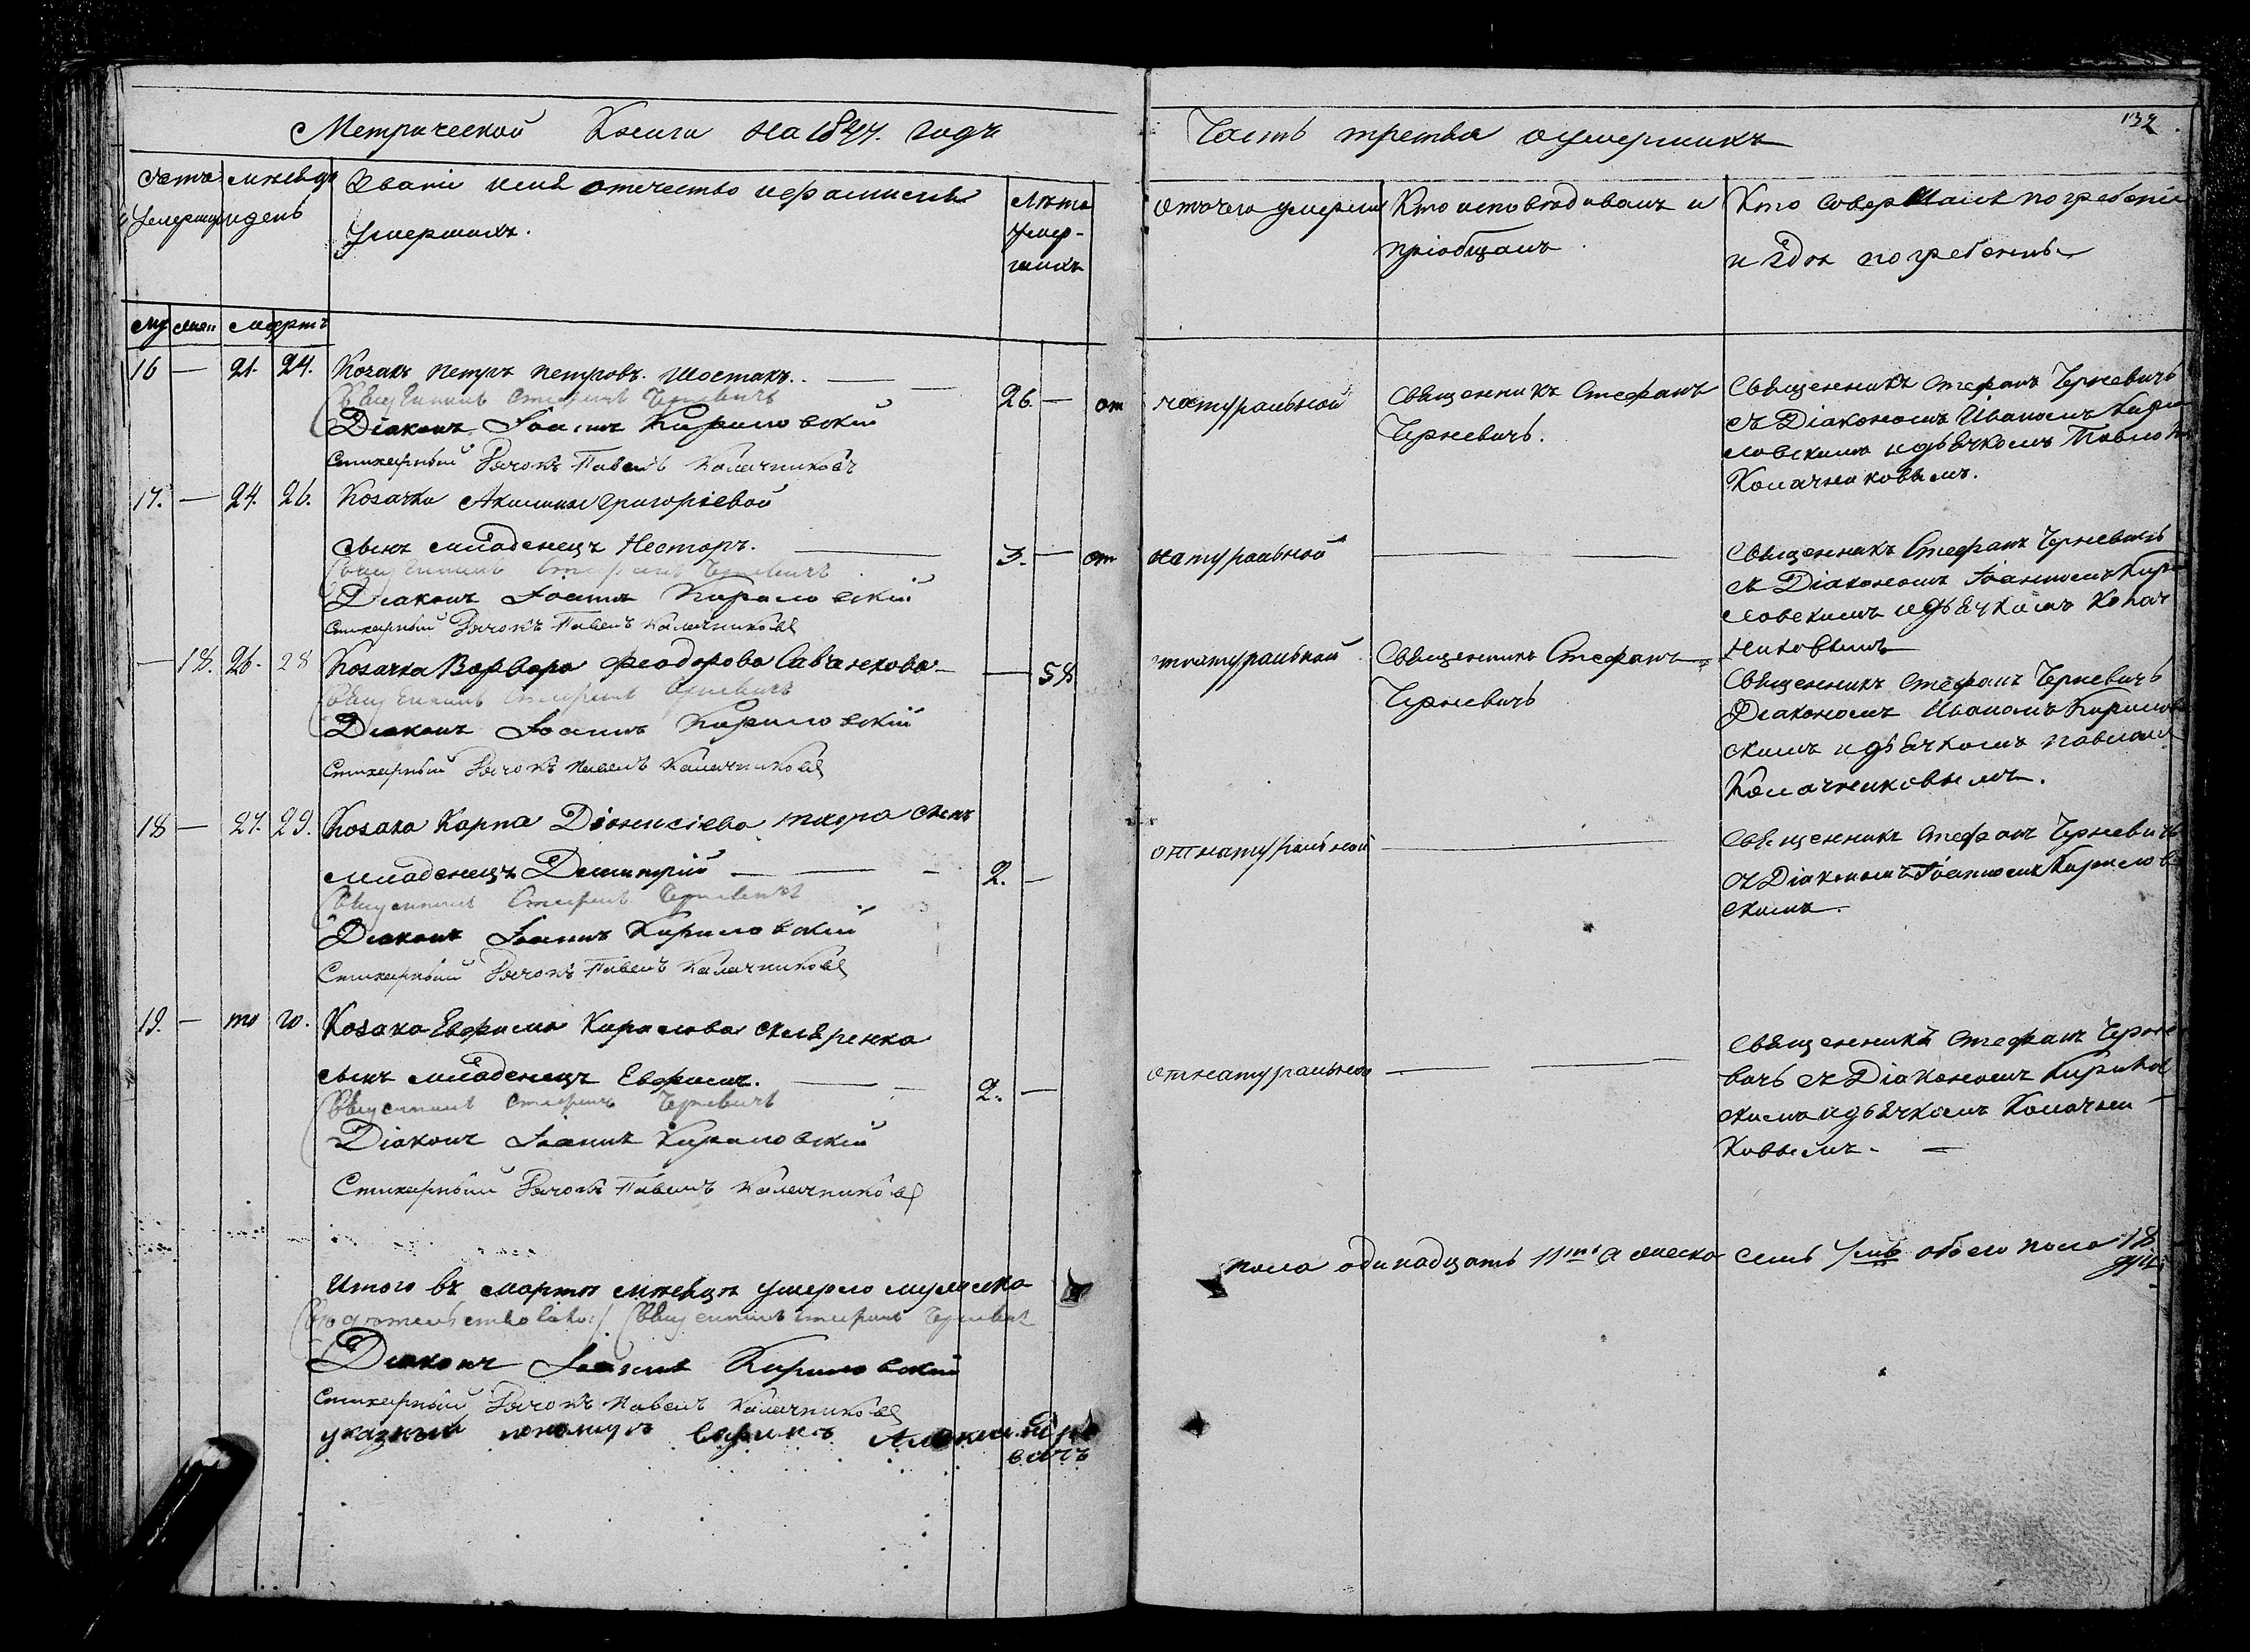 Метрической Книги на 1847. годъ
Часть третья о умершихъ
132
Счетъ умершихъ
Мѣсяцъ и день
Званіе имя отечество и фамилія
Умершихъ.
Лѣта
умер-
шихъ
отчего умерли
Кто исповѣдывалъ и
пріобщалъ
Кто совершалъ погребеніе
и гдѣ погребены
Му
Мартъ
16 — 21. 24. Козакъ Петръ Петровъ Шостакъ. 26. — от натуральной
Священникъ Стефанъ
Черневичъ.
Священникъ Стефанъ Черневичъ
съ Діакономъ Иваномъ Кири
ловскимъ и дьячкомъ Павломъ
Колачниковымъ.
Священникъ Стефанъ Черневичъ
Діаконъ Іоаннъ Кириловскій
Стихарный Дячокъ Павелъ Калачниковъ
17. — 24. 26. Козачки Акилины Григоріевой
сынъ младенецъ Несторъ. 3. — от натуральной
Священникъ Стефанъ Черневичъ
съ Діакономъ Іоанномъ Кири
ловскимъ и дьячкомъ Колач
никовымъ
Священникъ Стефанъ Черневичъ
Діаконъ Іоаннъ Кириловскій
Стихарный Дячокъ Павелъ Калачниковъ
— 18. 26. 28 Козачка Варвара Феодорова Саванкова — 58 натуральной
Священникъ Стефанъ
Черневичъ
Священникъ Стефанъ Черневичъ
Діакономъ Иваномъ Кирилов
скимъ и дьячкомъ Павломъ
Колачниковымъ.
Священникъ Стефанъ Черневичъ
Діаконъ Іоаннъ Кириловскій
Стихарный Дячокъ Павелъ Калачниковъ
18 — 27. 29. Козака Карпа Діонисіева сынъ
младенецъ Димитрій — 2. — от натуральной
Священникъ Стефанъ Черневичъ
съ Діакономъ Іоанномъ Кирилов
скимъ.
Священникъ Стефанъ Черневичъ
Діаконъ Іоаннъ Кириловскій
Стихарный Дячокъ Павелъ Калачниковъ
19. — то го. Козака Евфима Кирилова Скляренка
сынъ младенецъ Евфимъ. — 2. — от натуральной
Священникъ Стефанъ Черне
вичъ съ Діакономъ Кирилов
скимъ и дьячкомъ Колачни
ковымъ. —
Священникъ Стефанъ Черневичъ
Діаконъ Іоаннъ Кириловскій
Стихарный Дячокъ Павелъ Калачниковъ
Итого въ Мартѣ мѣсяцѣ умерло мужеска
пола одинадцать 11ть а женска семь 7мь обоего пола 18 душ
Священникъ Стефанъ Черневичъ
Діаконъ Іоаннъ Кириловскій
Стихарный Дячокъ Павелъ Калачниковъ
указный пономарь